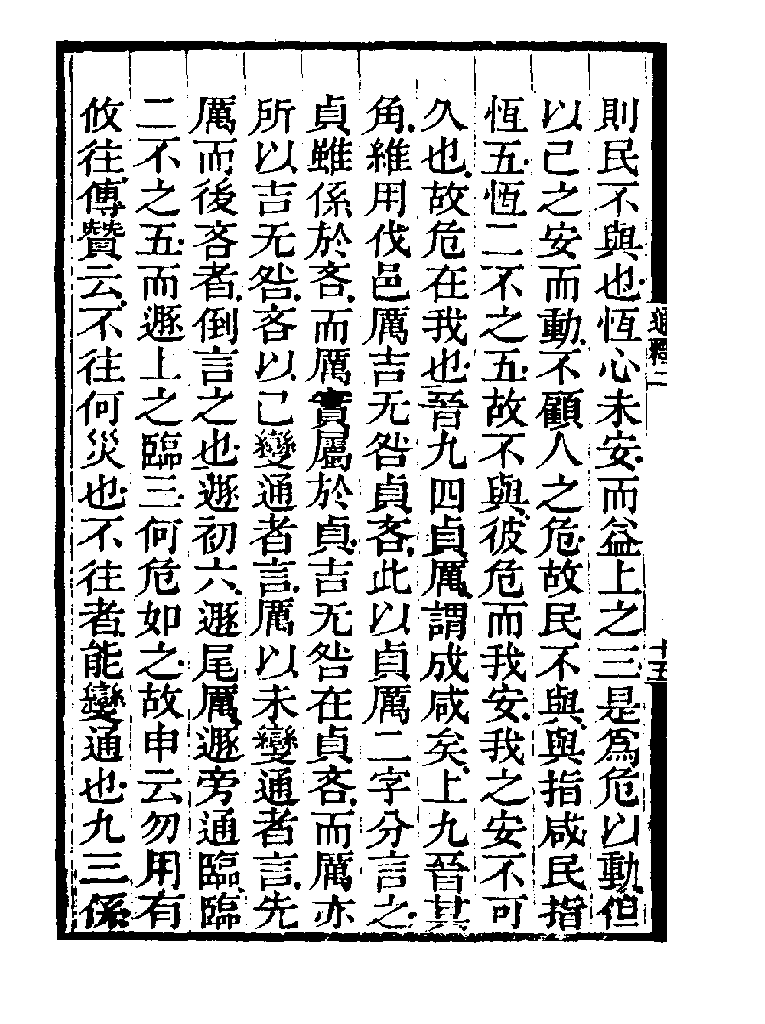 則民不與也恆心未安而益上之三是爲危以動但
以己之安而動不顧人之危故民不與與指咸民指
恆五恆二不之五故不與彼危而我安我之安不可
久也故危在我也晉九四貞厲謂成咸矣上九晉其
角維用伐邑厲吉无咎貞吝此以貞厲二字分言之
貞雖係於吝而厲實屬於貞吉无咎在貞吝而厲亦
所以吉无咎吝以己變通者言厲以未變通者言先
厲而後吝者倒言之也遯初六遯尾厲遯旁通臨臨
二不之五而遯上之臨三何危如之故申云勿用有
攸往傳贊云不往何災也不往者能變通也九三係
通釋二
十五